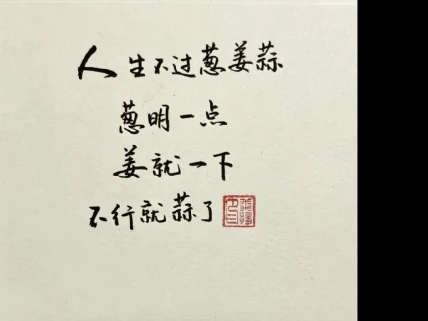 人生不过葱姜蒜
葱明一点
姜就一下
不行就蒜了